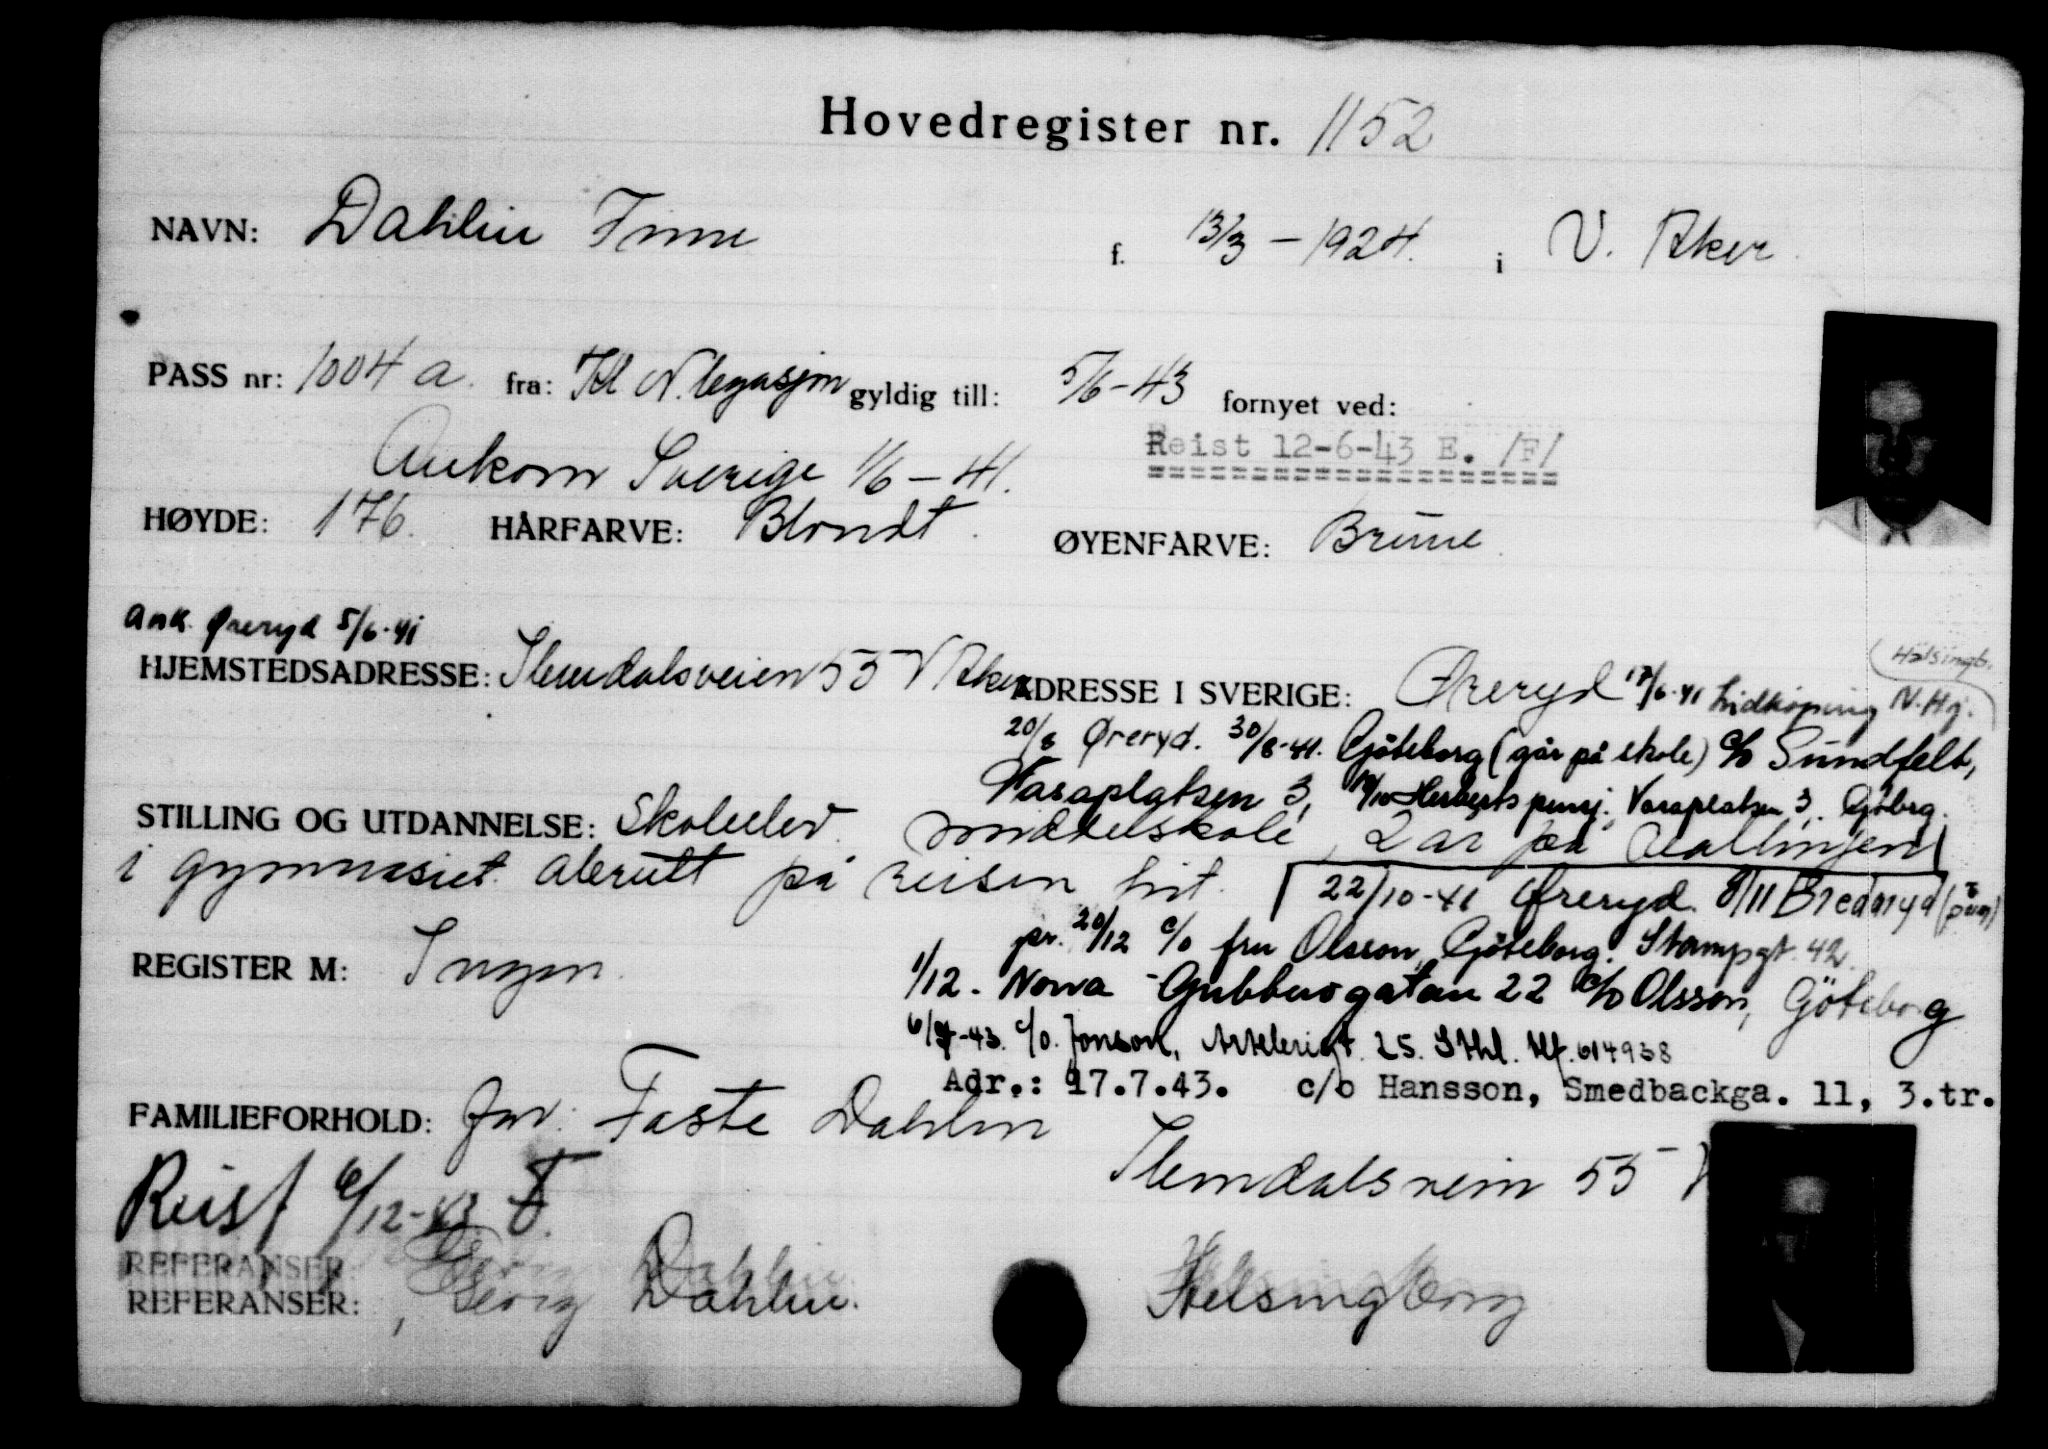 Hovedregister nr. 1152
NAVN: Dahlin Finn f. 13/3 - 1924. i V. Aker
PASS nr: 1004 a. fra: Kl N. legasjon gyldig till: 5/6-43 fornyet ved:
Reist 12-6-43 E. /F/
Ankom Sverige 1/6 - 41.
HØYDE: 176. HÅRFARVE: Blondt. ØYENFARVE: Brune
Ank. Øreryd 5/6-41
HJEMSTEDSADRESSE: Slemdalsveien 55 V Aker
ADRESSE I SVERIGE: Øreryd 17/6-41 Lidköping N. Hj.
Hälsingb.
20/8 Øreryd. 30/8-41. Gøteborg (går på skole) c/o Sundfelt,
Vasaplatsen 3, Herberts pensj., Vasaplatsen 3, Gøtbrg.
STILLING OG UTDANNELSE: Skoleelev. middelskole, 2 år på reallinjen
i gymnasiet. Abrutt på reisen hit.
22/10-41 Øreryd. 8/11 Bredaryd
pr. 20/12 c/o fru Olsson, Gøteborg. Stampgt. 42.
REGISTER M: Ingen.
1/12. Norra Gubberogatan 22 c/o Olsson, Göteborg
c/o. Jonson, 25. Sthl. tlf. 614938
Adr.: 17.7.43. c/o Hansson, Smedbackga. 11, 3.tr.
FAMILIEFORHOLD: far: Faste Dahlin
Slemdalsveien 55 V
Reist 6/12-43 F.
REFERANSER:
REFERANSER: Georg Dahlin. Helsingborg